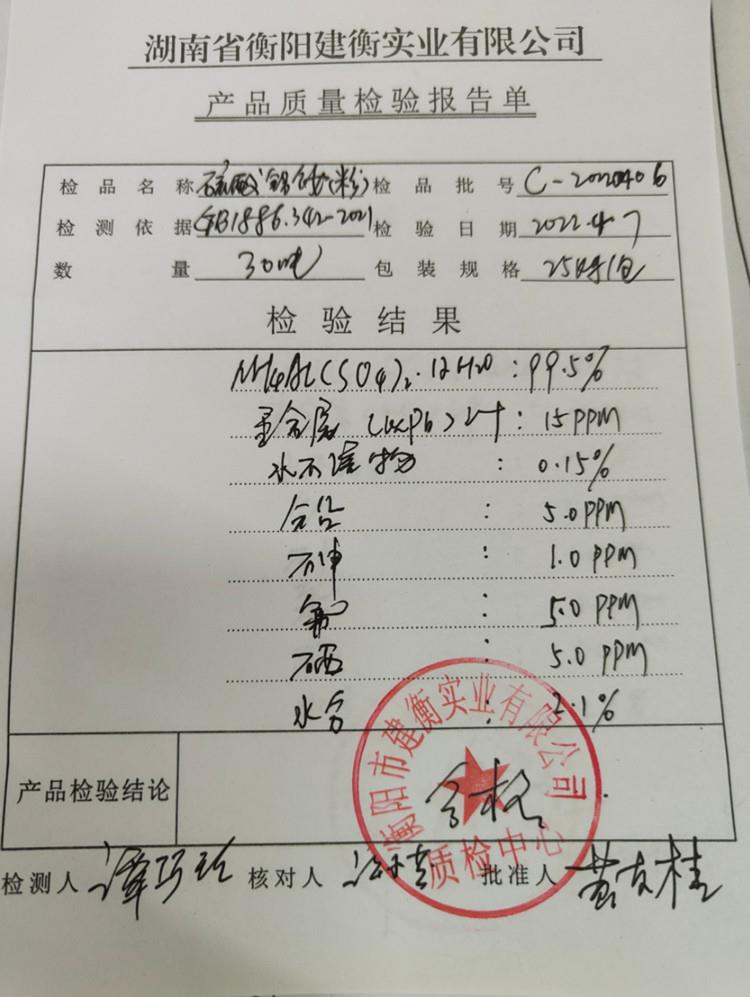 湖南省衡阳建衡实业有限公司
产品质量检验报告单
检品名称 硫酸铝铵(粉) 检品批号 C-20220406
检测依据 GB1886.342-2021 检验日期 2022.4.7
数量 30吨 包装规格 25kg/包
检验结果
NH4Al(SO4)2.12H2O : 99.5%
重金属(以Pb)计 : 15PPM
水不溶物 : 0.15%
铅 : 5.0PPM
砷 : 1.0PPM
氟 : 5.0PPM
硒 : 5.0PPM
水份 : 2.1%
产品检验结论 合格
衡阳市建衡实业有限公司
质检中心
检测人 核对人 批准人 黄友桂